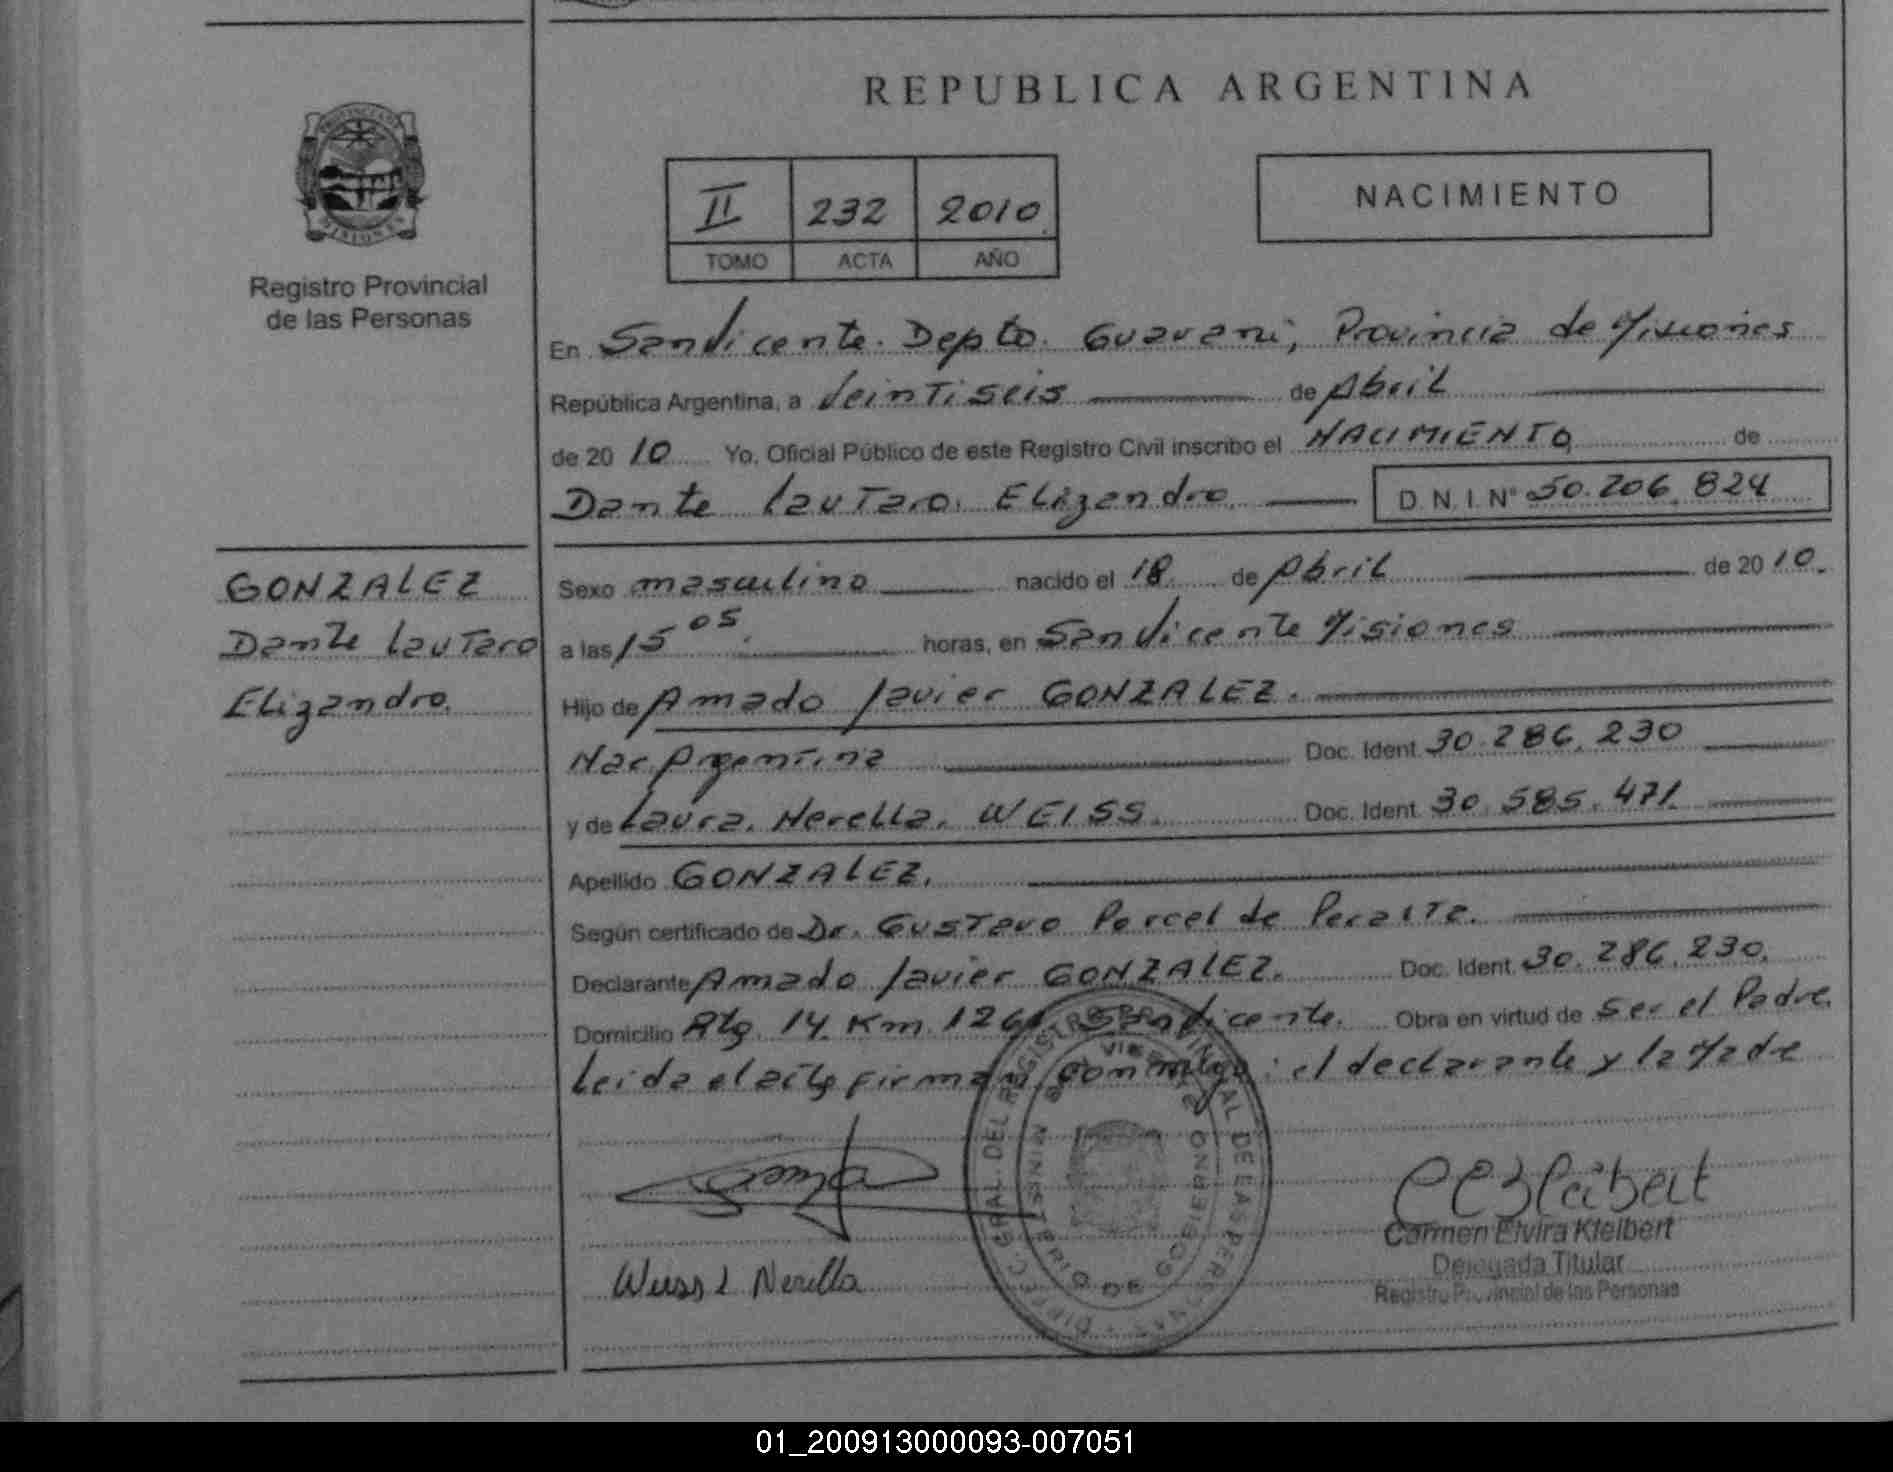 REPUBLICA ARGENTINA
II 232 2010
TOMO ACTA AÑO
NACIMIENTO
Registro Provincial
de las Personas
En San Vicente. Depto. Guarani, Provincia de Misiones
República Argentina, a Veintiseis de Abril
de 20 10 Yo, Oficial Público de este Registro Civil inscribo el NACIMIENTO de
Dante Lautaro Elizandro D.N.I. N° 50.206.824
GONZALEZ
Dante Lautaro
Elizandro.
Sexo masculino nacido el 18 de Abril de 20 10.
a las 15 05. horas, en San Vicente Misiones
Hijo de Amado Javier GONZALEZ.
Nac. Argentina Doc. Ident. 30.286.230
y de Laura. Nerella. WEISS. Doc. Ident. 30.585.471.
Apellido GONZALEZ.
Según certificado de Dr. Gustavo Porcel de Peralta.
Declarante Amado Javier GONZALEZ. Doc. Ident. 30.286.230.
Domicilio Rta. 14 Km. San Vicente. Obra en virtud de ser el Padre.
Leida el acta firman conmigo: el declarante y la Madre
Weiss L Nerella
Carmen Elvira Kleibert
Delegada Titular
Registro Provincial de las Personas
01_200913000093-007051